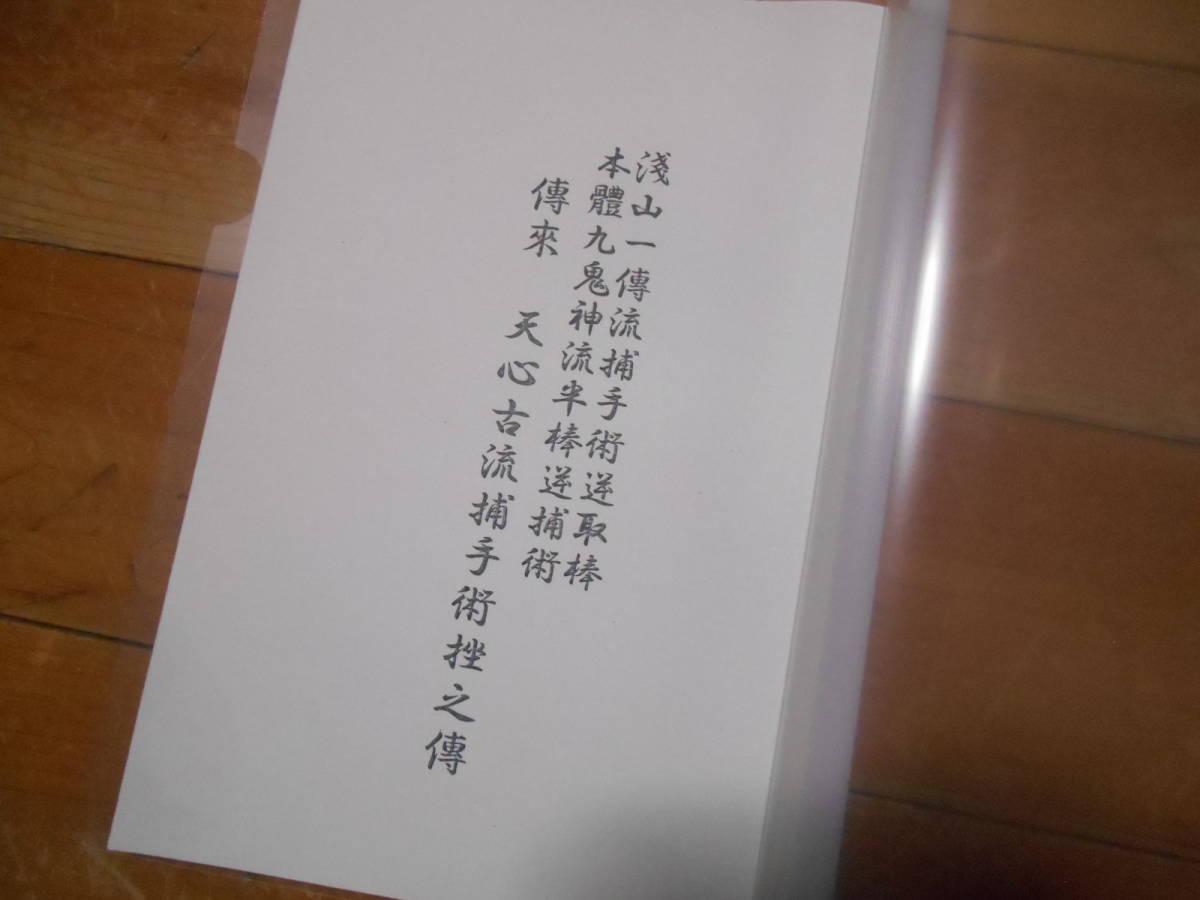 淺山一傳流捕手術逆取棒
本體九鬼神流半棒逆捕術
傳來　天心古流捕手術挫之傳